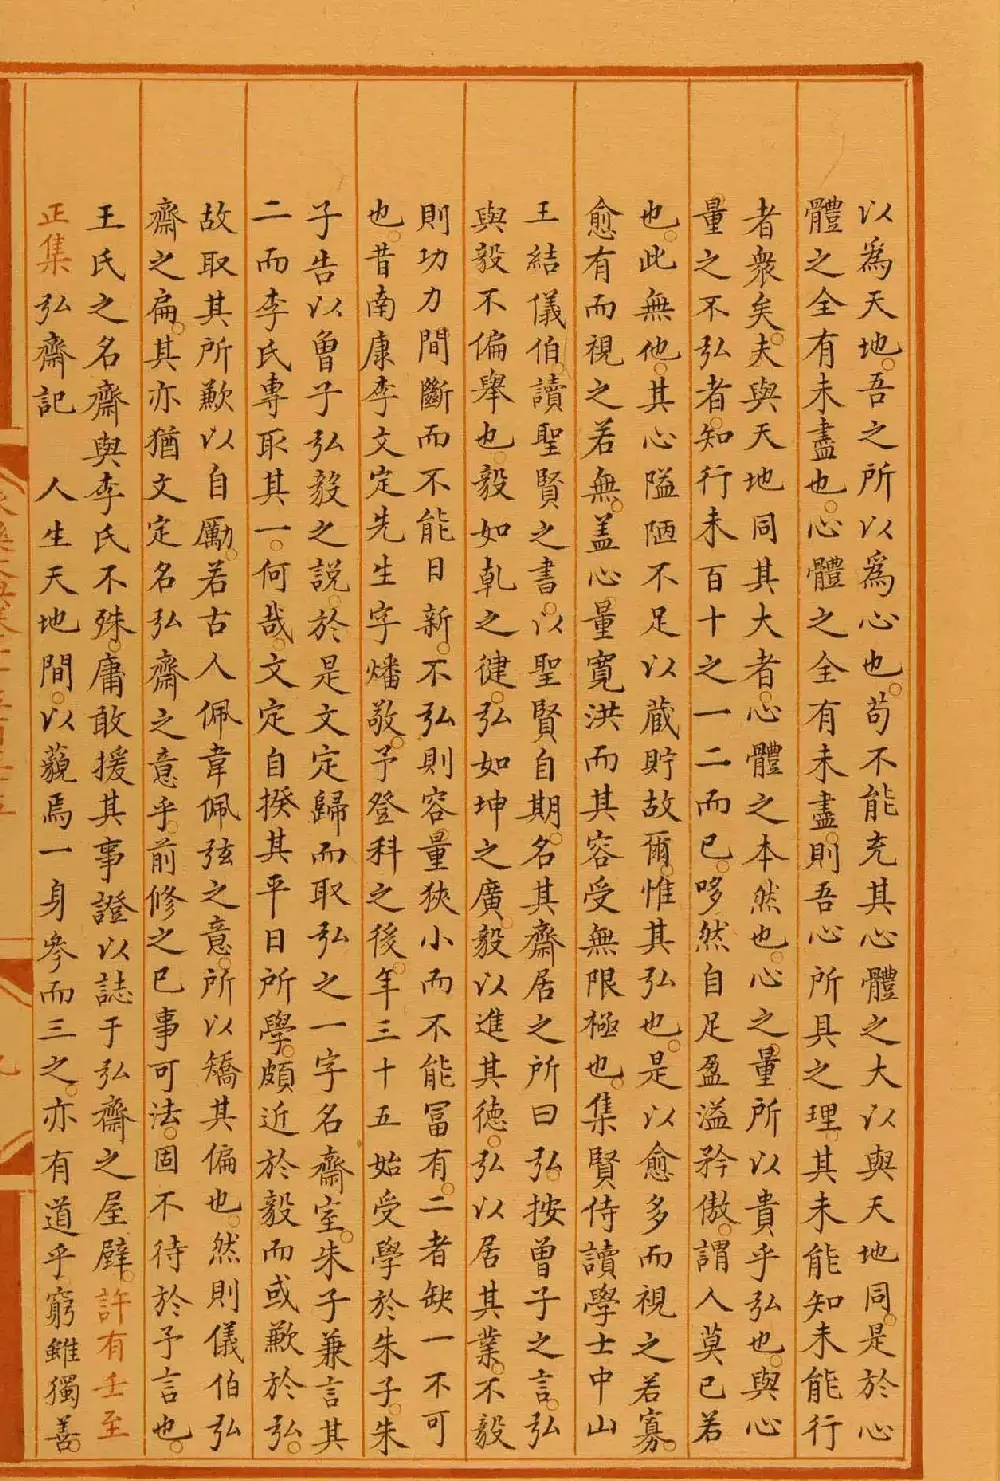 以為天地吾之所以為心也苟不能充其心體之大以與天地同是於心
體之全有未盡也心體之全有未盡則吾心所具之理其未能知未能行
者衆矣夫與天地同其大者心體之本然也心之量所以貴乎弘也與心
量之不弘者知行未百十之一二而已哆然自足盈溢矜傲謂人莫己若
也此無他其心隘陋不足以蔵貯故爾惟其弘也是以愈多而視之若寡
愈有而視之若無盖心量寛洪而其容受無限極也集賢侍讀學士中山
王結儀伯讀聖賢之書以聖賢自期名其齋居之所曰弘按曾子之言弘
與毅不偏舉也毅如乹之健弘如坤之廣毅以進其徳弘以居其業不毅
則功力間斷而不能日新不弘則容量狹小而不能冨有二者缺一不可
也昔南康李文定先生字燔敬予登科之後年三十五始受學於朱子朱
子告以曽子弘毅之説於是文定歸而取弘之一字名齋室朱子兼言其
二而李氏專取其一何哉文定自揆其平日所學頗近於毅而或歉於弘
故取其所歉以自勵若古人佩韋佩弦之意所以矯其偏也然則儀伯弘
齋之扁其亦猶文定名弘齋之意乎前修之已事可法固不待於予言也
王氏之名齋與李氏不殊庸敢援其事證以誌于弘齋之屋壁許有壬至
正集弘齋記 人生天地間以藐焉一身參而三之亦有道乎窮雖獨善